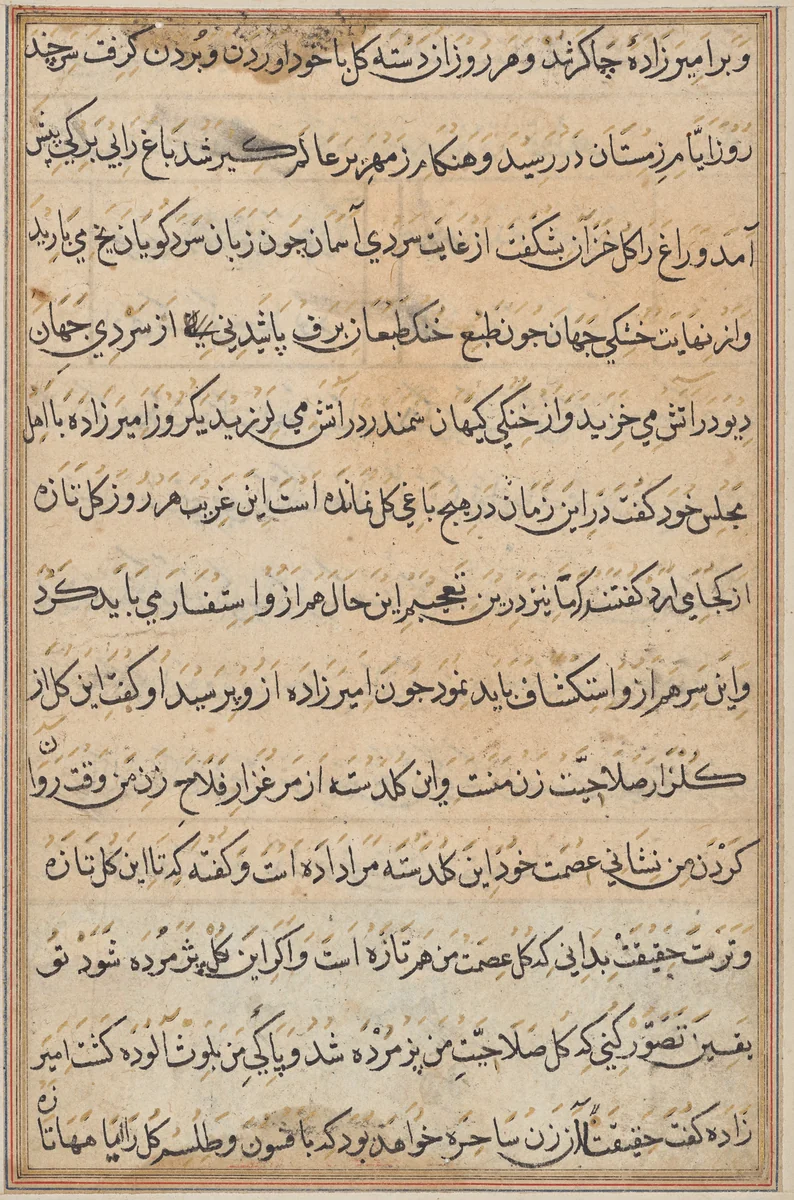 و بر امیرزادهٔ چاکر شد و هر روز ان دسته کل با خود اوردن و بُردن کرفت سرِ چند
روز ایّام زمستان در رسید و هنکام زمهریر عالم کیر شد باغ را بی برکی پیش
آمد و راغ را کل خزان بشکفت از غایت سردی آسمان چون زبان سرد کویان یخ می بارید
و از نهایت خشکی جهان جون طبع خنک طبعان برف پاشیدنی از سردی جهان
دیو در اتش می خزید و از خنکی کیهان سمندر در اتش می لرزید یکروز امیرزاده با اهل
مجلس خود کفت در این زمان در هیج باغی کل نمانده است این غریب هر روز کل تازه
از کجا می ارد کفتند که ما نیز درین تعجبیم این حال هم از و استفسار می باید کرد
و این سر هم از و استکشاف باید نمود جون امیرزاده از و پرسید او کفت این کل از
کلزار صلاحیّت زن منست و این کلدسته از مرغزار فلاحِ زن من وقت روان
کردن من نشانی عصمت خود این کلدسته مرا داده است و کفته که تا این کل تازه
و ترست حقیقت بدانی که کل عصمت من هم تازه است و اکر این کل پژمرده شود تو
یقین تصوّر کنی که کل صلاحیّتِ من پژمرده شد و پاکیِ من بلوث آلوده کشت امیر
زاده کفت حقیقت آن زن ساحره خواهد بود که بافسون و طلسم کل را ماهها تازه